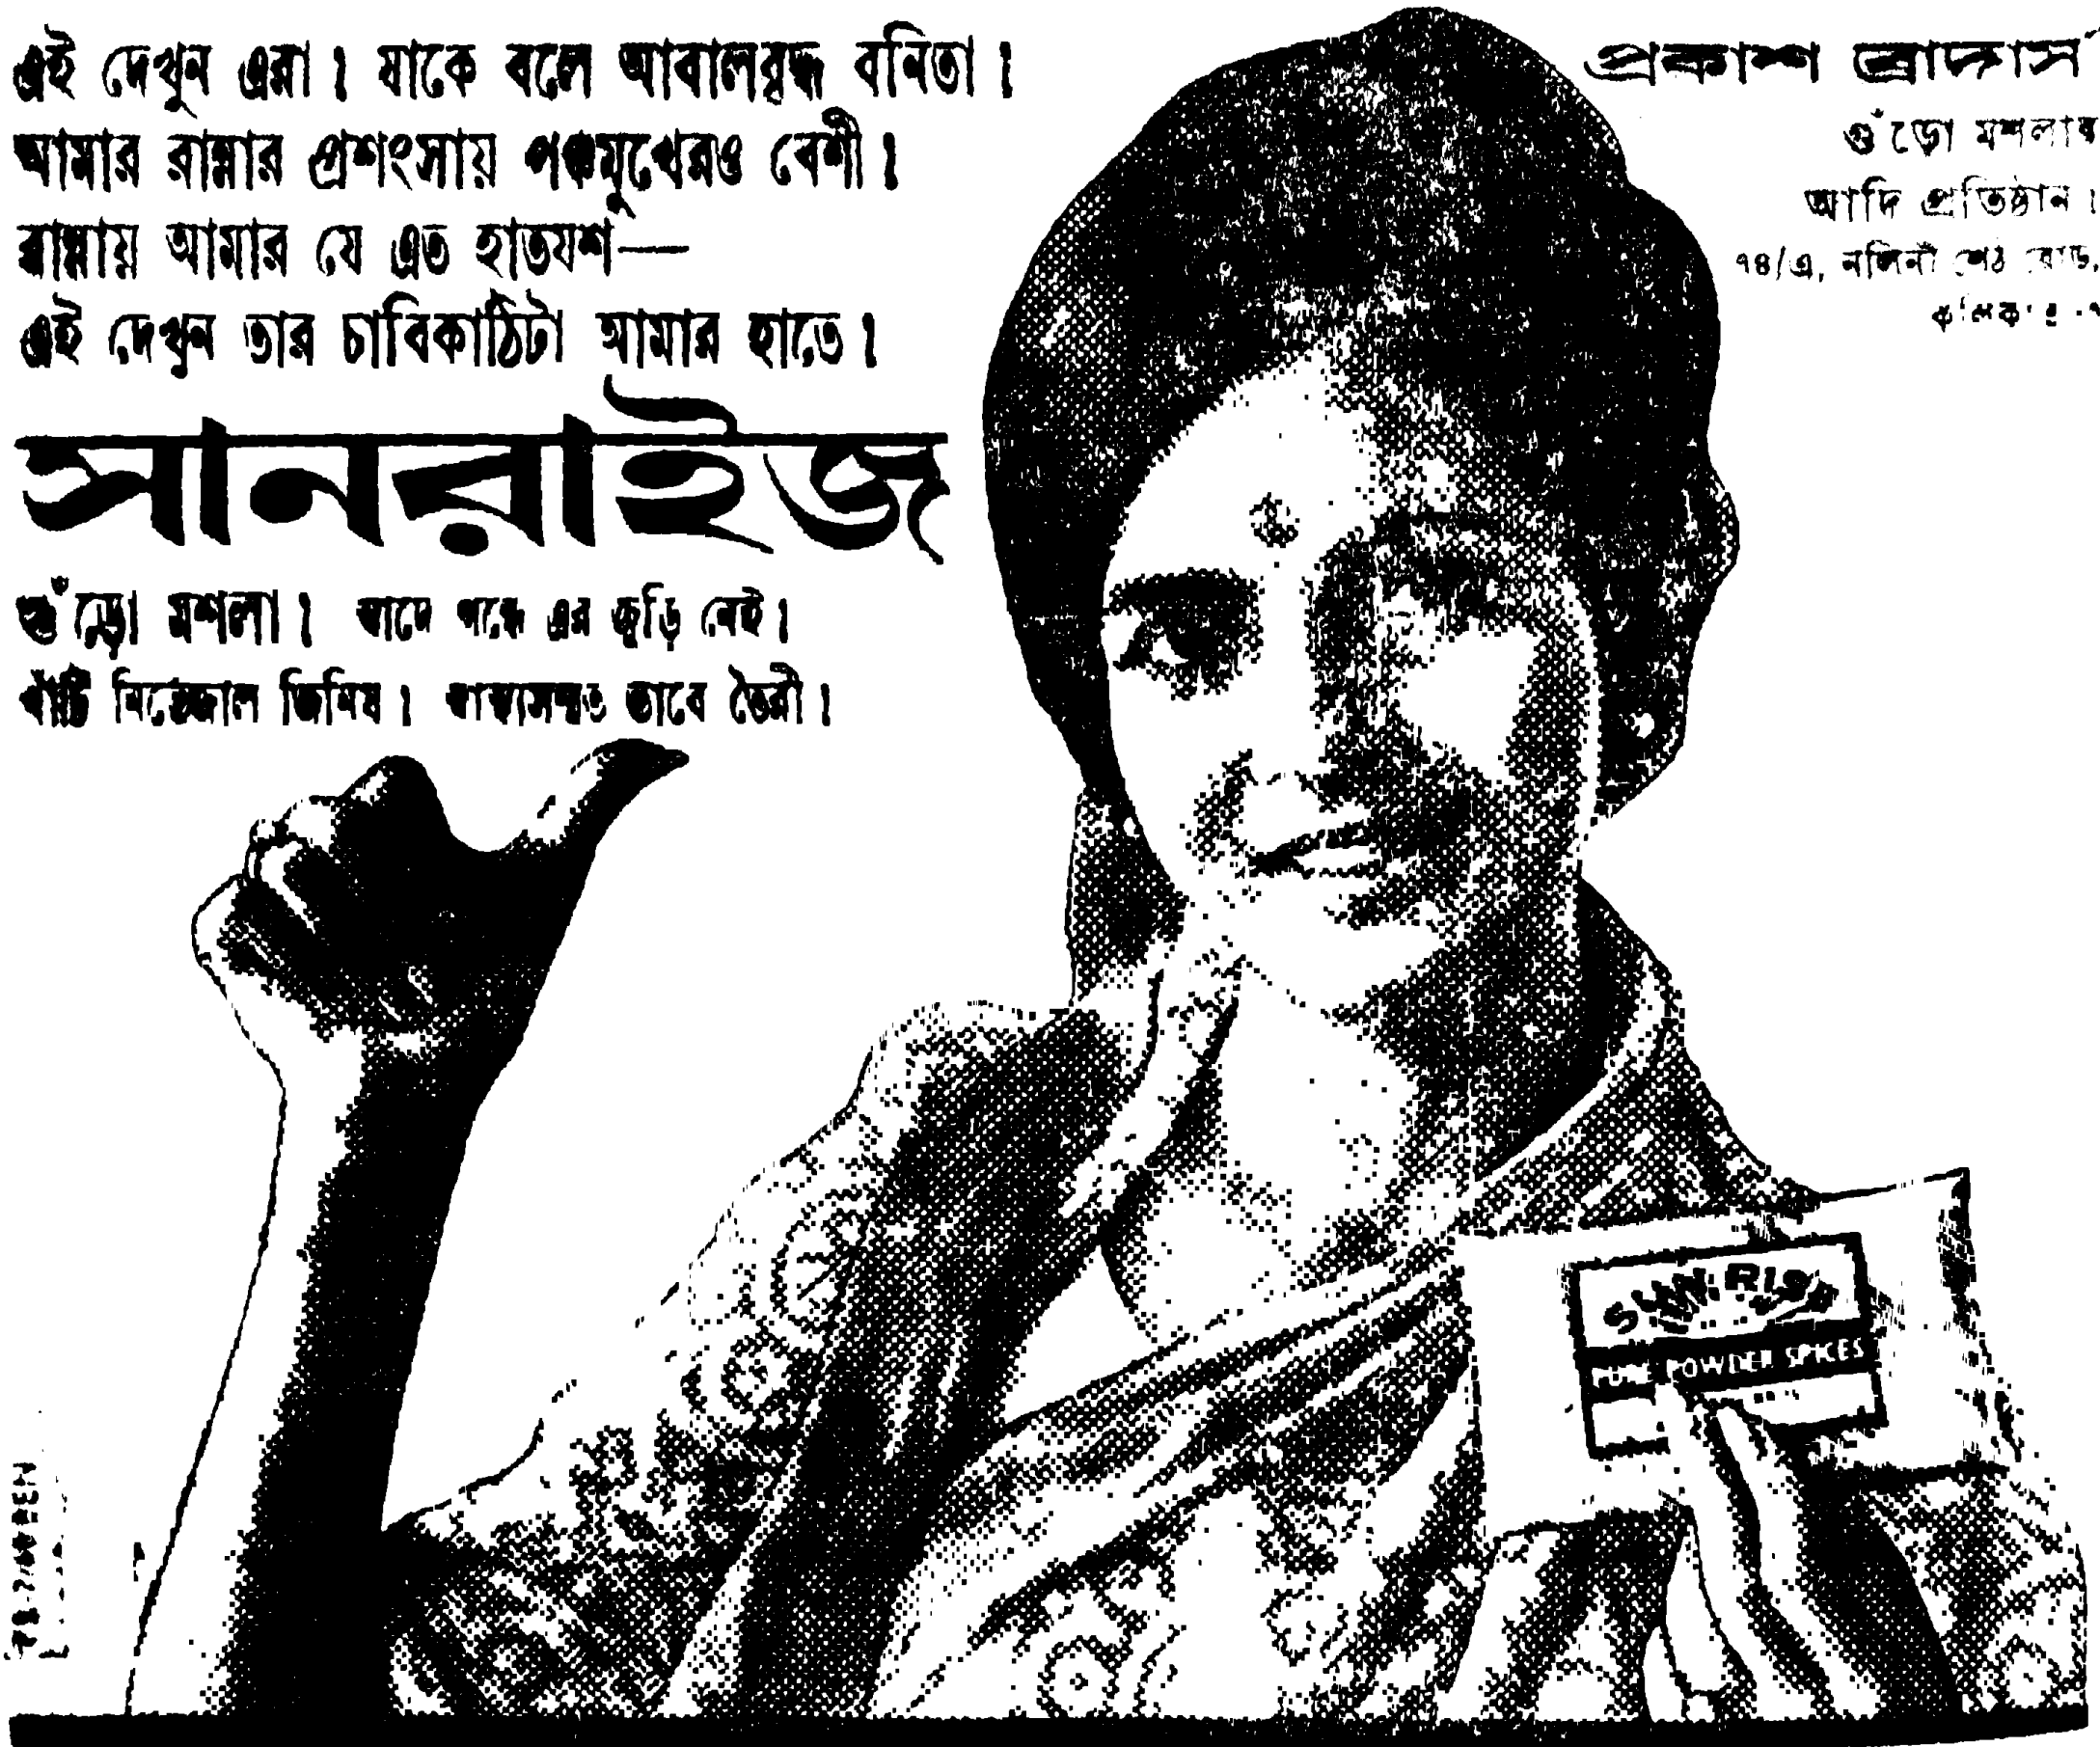 এই দেখুন এরা। যাকে বলে আবালবৃদ্ধ বনিতা।
আমার রান্নার প্রশংসায় পঞ্চমুখেরও বেশী।
রান্নায় আমার যে এত হাতযশ—
এই দেখুন তার চাবিকাঠিটা আমার হাতে।
সানরাইজ
গুঁড়ো মশলা। স্বাদে গন্ধে এর জুড়ি নেই।
খাঁটি নির্ভেজাল জিনিষ। স্বাস্থ্যসম্মত ভাবে তৈরী।
প্রকাশ ব্রাদার্স
গুঁড়ো মশলার
আদি প্রতিষ্ঠান।
৭৪/এ, নলিনী শেঠ রোড,
SUN RISE
PURE POWDER SPICES